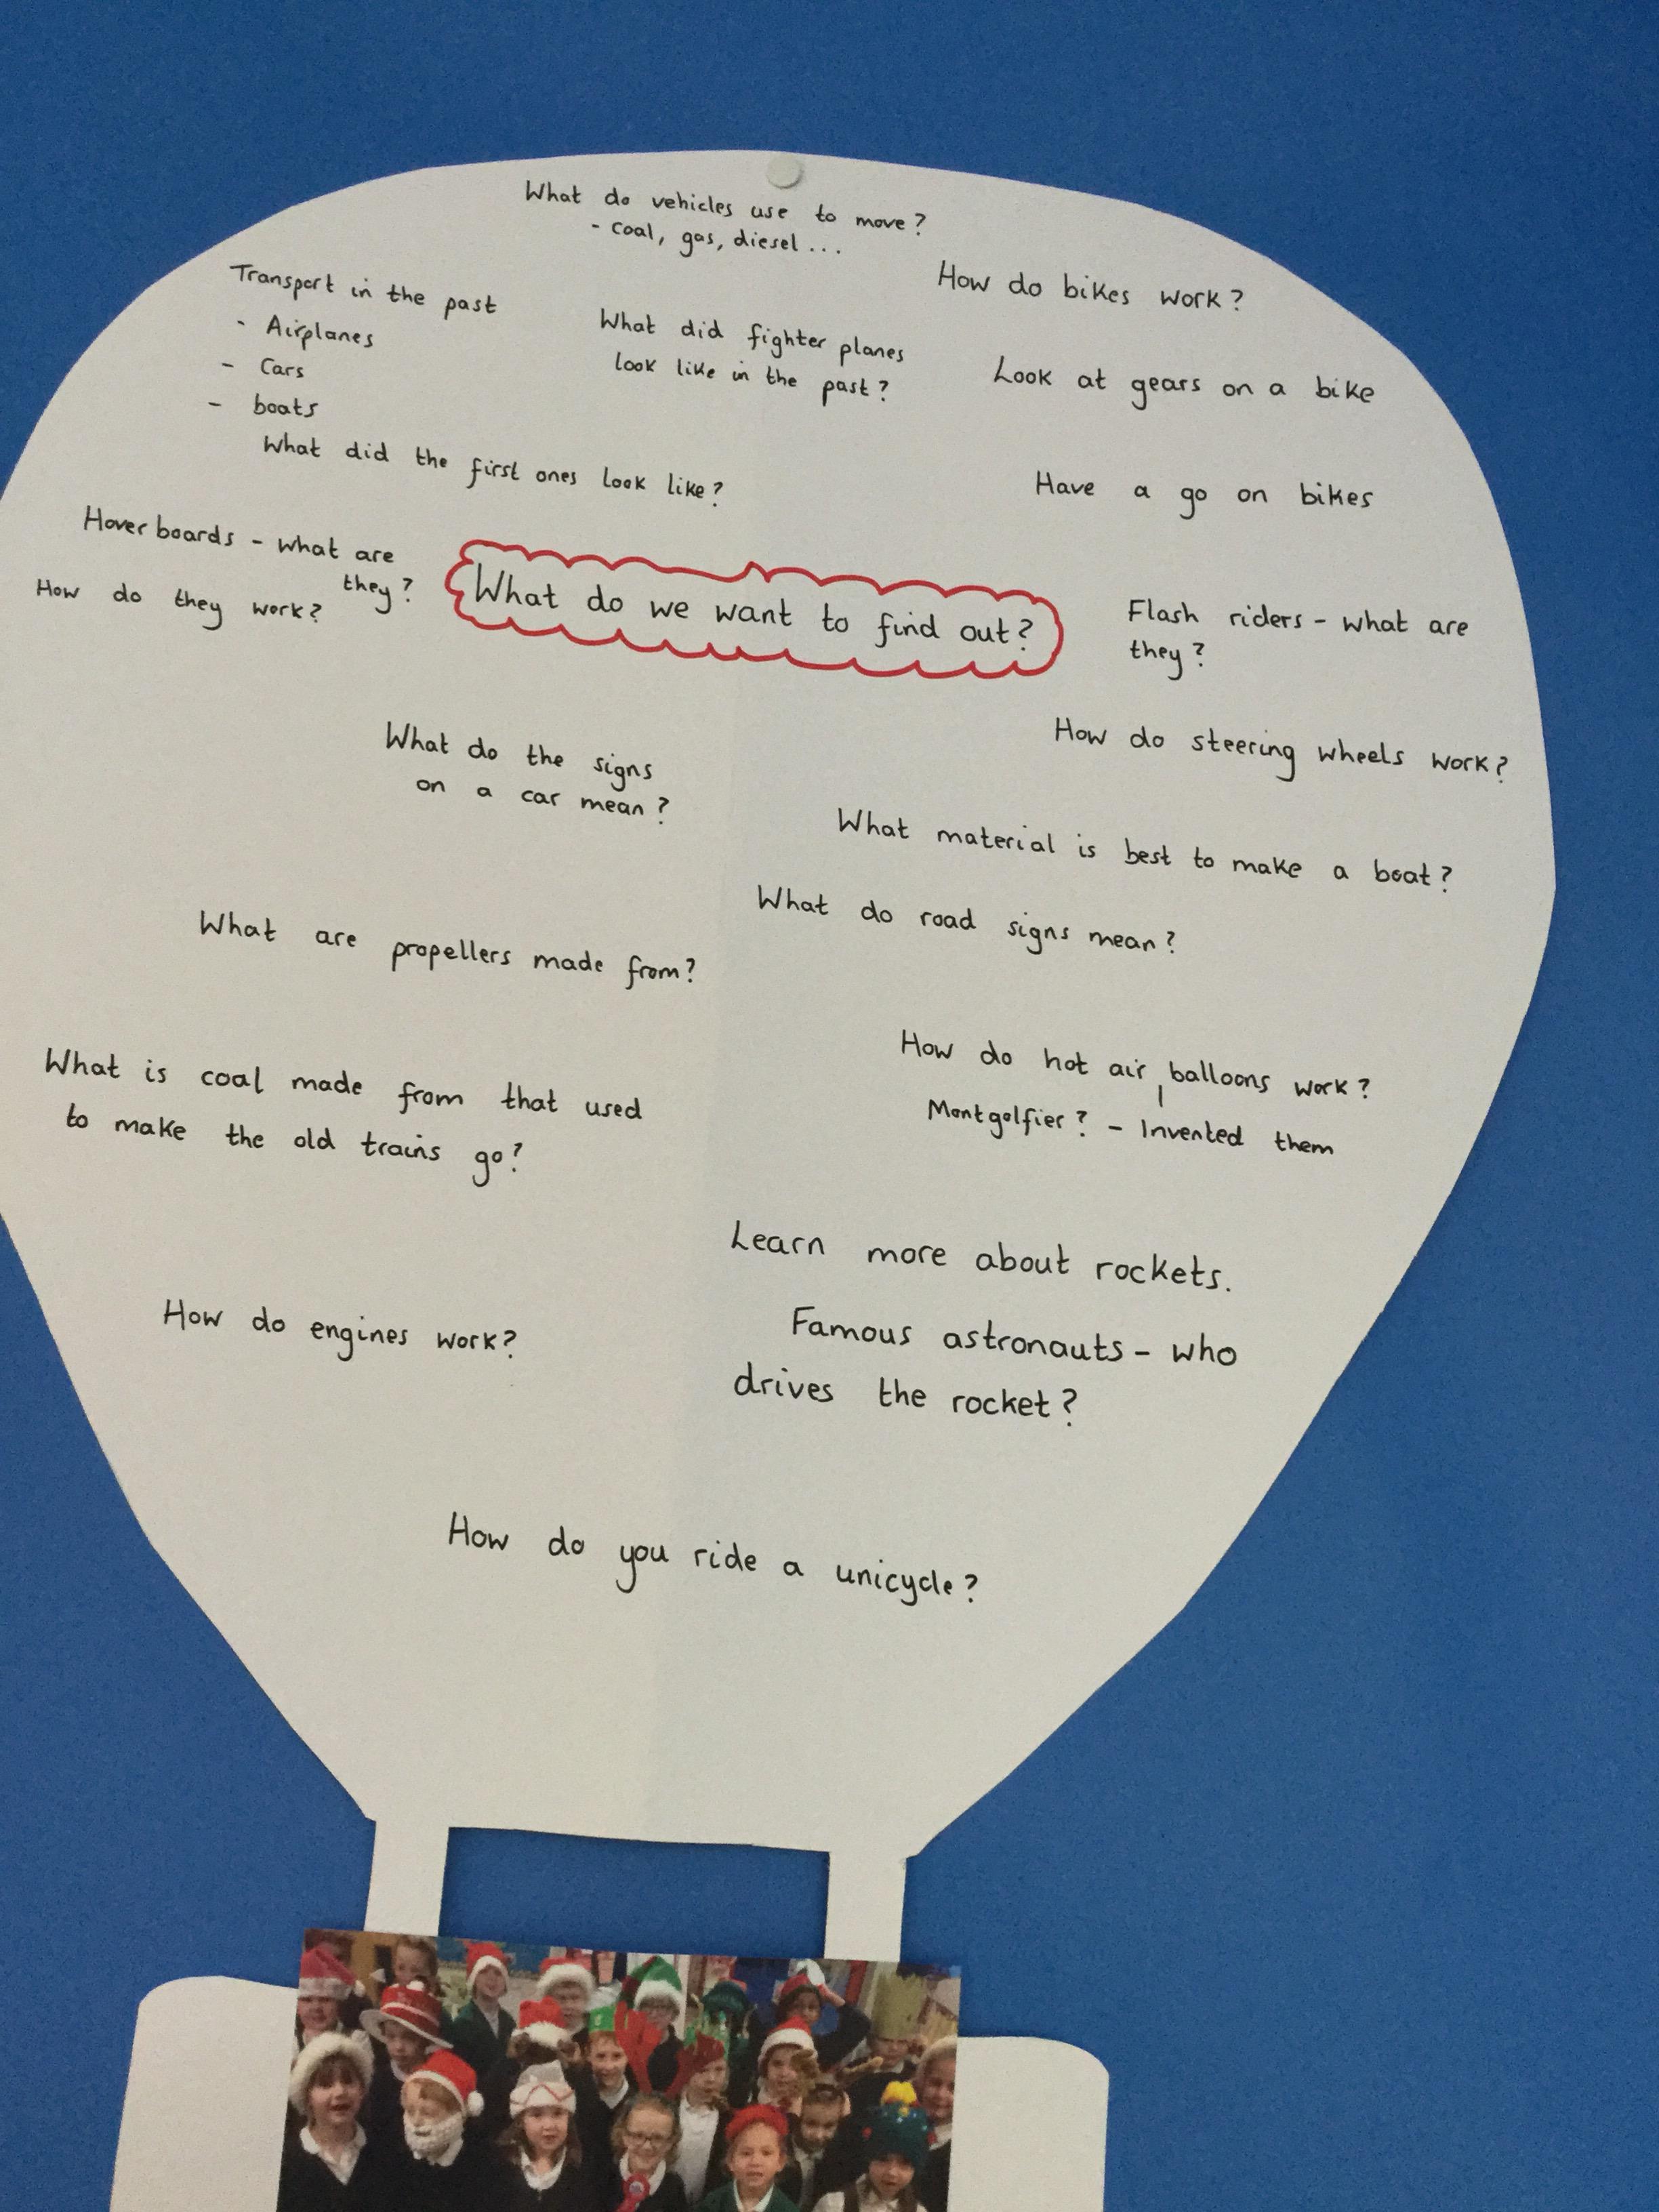 What do vehicles use to move?
- coal, gas, diesel...
Transport in the past
- Airplanes
- Cars
- boats
What did the first ones look like?
What did fighter planes
look like in the past?
How do bikes work?
Look at gears on a bike
Have a go on bikes
Hover boards - what are
they?
How do they work?
What do we want to find out?
Flash riders - what are
they?
How do steering wheels work?
What do the signs
on a car mean?
What material is best to make a boat?
What do road signs mean?
What are propellers made from?
How do hot air balloons work?
Montgolfier? - Invented them
What is coal made from that used
to make the old trains go?
Learn more about rockets.
Famous astronauts - who
drives the rocket?
How do engines work?
How do you ride a unicycle?